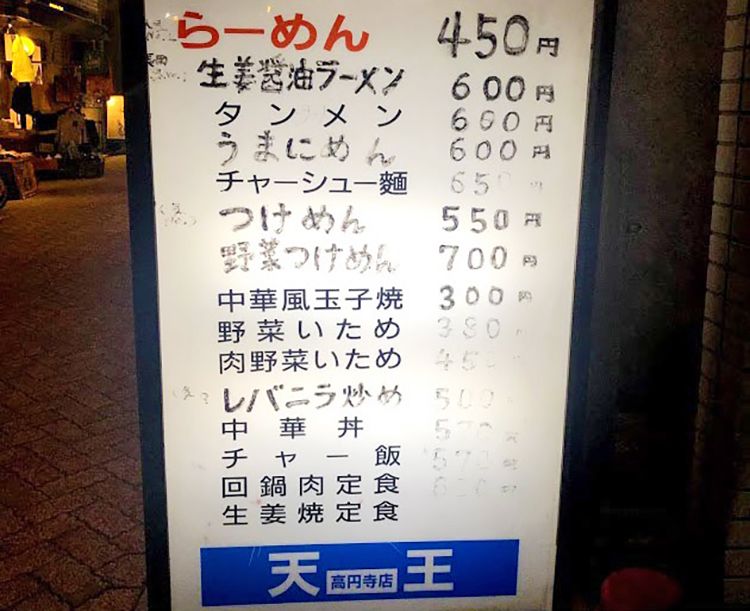 らーめん 450円
生姜醤油ラーメン 600円
タンメン 600円
うまにめん 600円
チャーシュー麺 650円
つけめん 550円
野菜つけめん 700円
中華風玉子焼 300円
野菜いため 380円
肉野菜いため 450
レバニラ炒め 500
中華丼 570
チャー飯 570
回鍋肉定食
生姜焼定食
天王
高円寺店